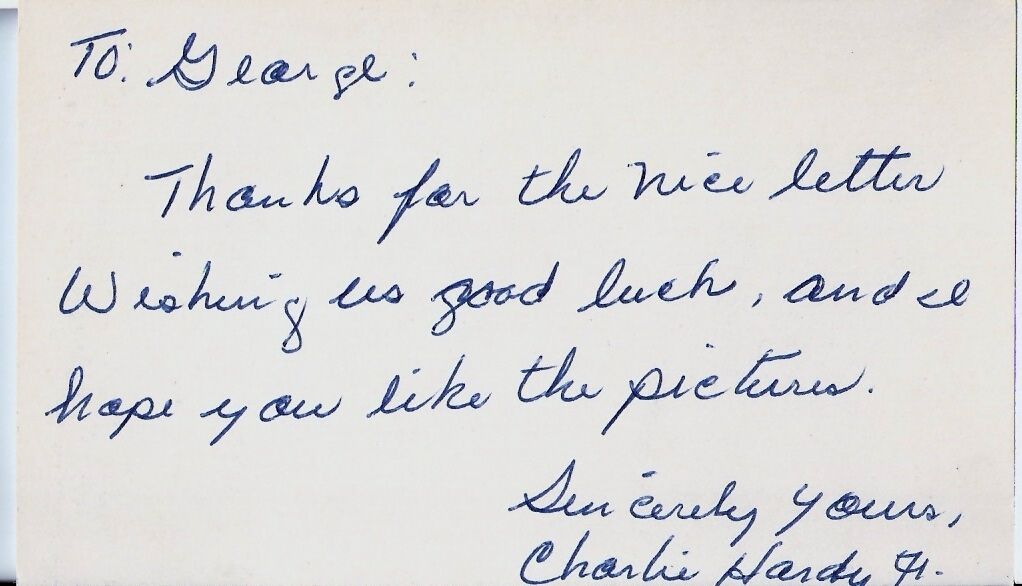 To: George:
Thanks for the nice letter
Wishing us good luck, and I
hope you like the pictures.
Sincerely yours,
Charlie Hardy